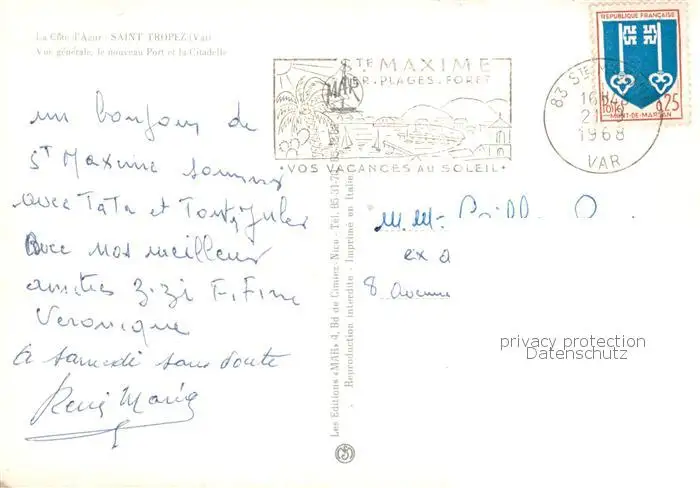 La Côte d'Azur - SAINT TROPEZ (Var)
Vue générale, le nouveau Port et la Citadelle
STE MAXIME
MER-PLAGES-FORET
VOS VACANCES AU SOLEIL
83 STE
16H45
21
1968
VAR
REPUBLIQUE FRANÇAISE
0,25
MONT-DE-MARSAN
un bonjour de
St Maxime sommes
avec TaTa et Tonty Jules
Avec nos meilleurs
amitiés Zizi Fifine
Veronique
a samedi sans doute
René Marie
M. Me
ex a
8 avenue
Les Editions «MAR» 4, Bd de Cimiez - Nice - Tél. 85-31-7
Reproduction interdite - Imprimé en Italie
privacy protection
Datenschutz